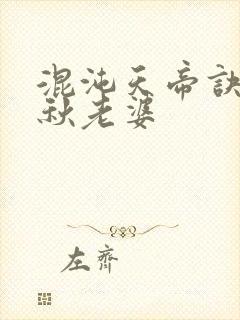 混沌天帝诀
秋老婆
左齐